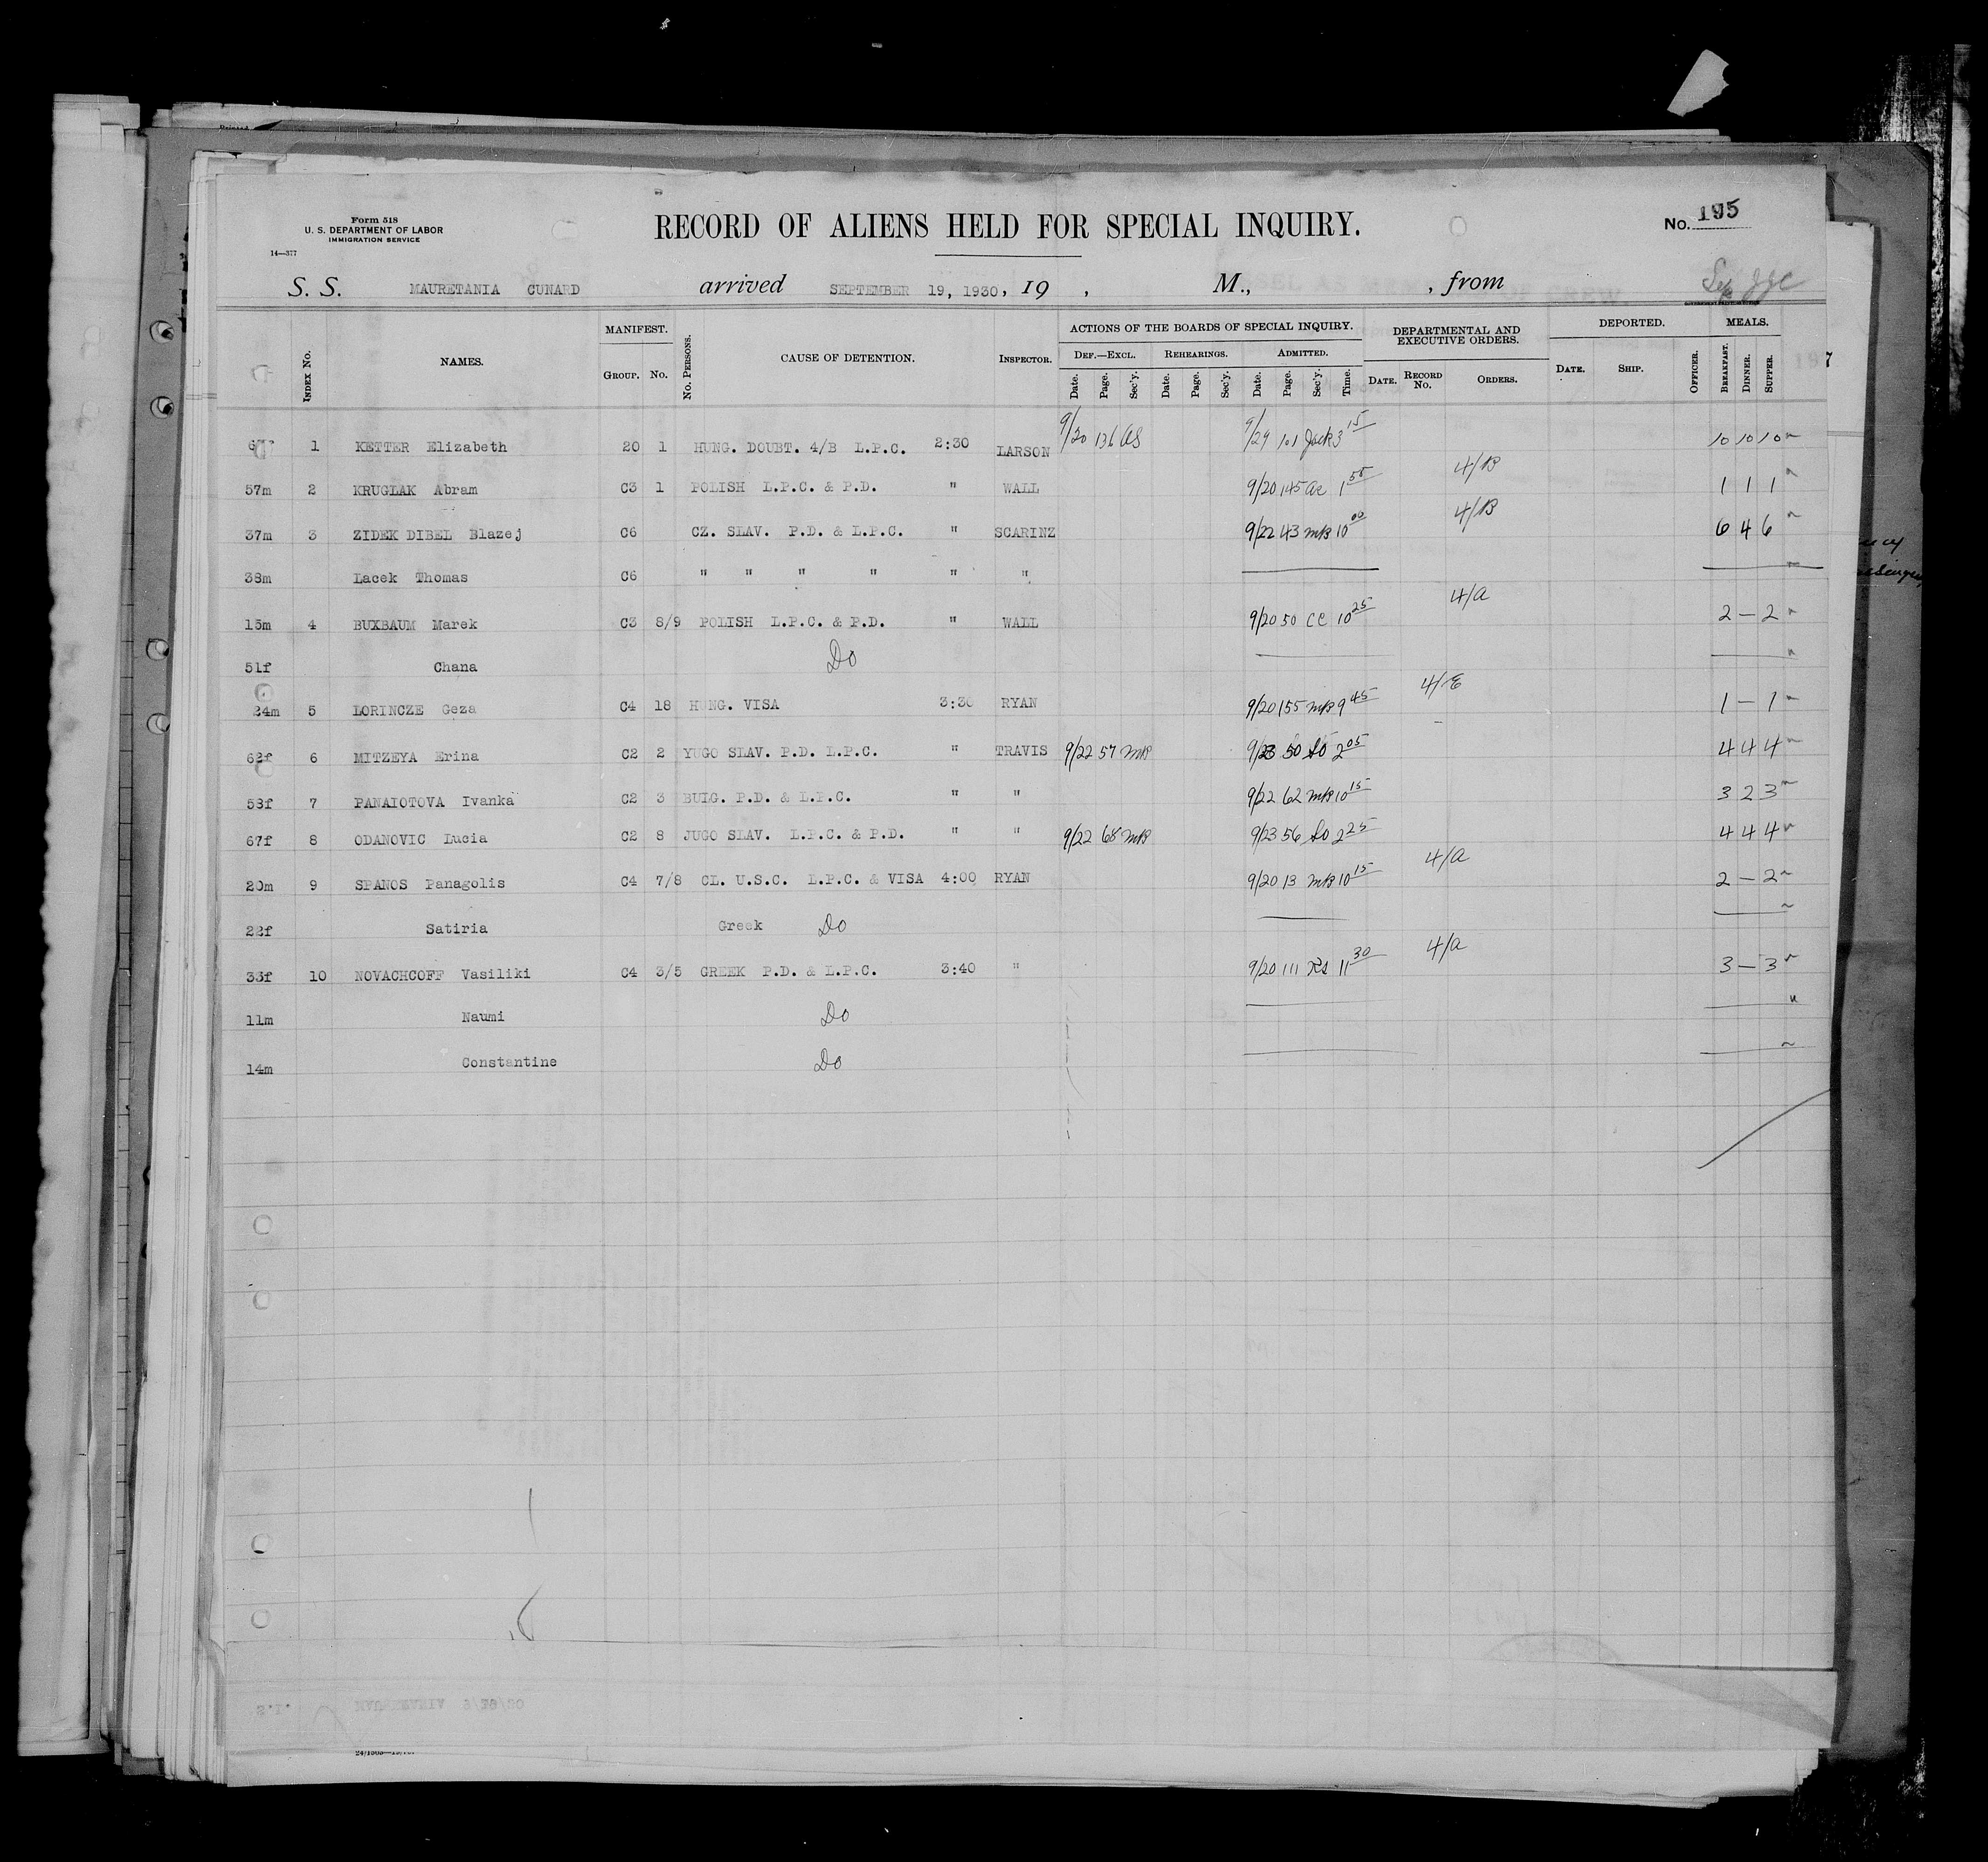 Form 518
U. S. DEPARTMENT OF LABOR
IMMIGRATION SERVICE
14—377
RECORD OF ALIENS HELD FOR SPECIAL INQUIRY.
No. 195
S. S. MAURETANIA CUNARD arrived SEPTEMBER 19, 1930, 19 , M., , from
INDEX No. NAMES. MANIFEST. GROUP. No. No. PERSONS. CAUSE OF DETENTION. INSPECTOR. ACTIONS OF THE BOARDS OF SPECIAL INQUIRY. DEF.—EXCL. Date. Page. Sec'y. REHEARINGS. Date. Page. Sec'y. ADMITTED. Date. Page. Sec'y. Time. DEPARTMENTAL AND EXECUTIVE ORDERS. DATE. RECORD No. ORDERS. DEPORTED. DATE. SHIP. OFFICER. MEALS. BREAKFAST. DINNER. SUPPER.
1 KETTER Elizabeth 20 1 HUNG. DOUBT. 4/B L.P.C. 2:30 LARSON 9/20 136 9/29 101 Jack 3 15 10 10 10
57m 2 KRUGLAK Abram C3 1 POLISH L.P.C. & P.D. " WALL 9/20 145 1 55 4/B 1 1 1
37m 3 ZIDEK DIBEL Blazej C6 CZ. SLAV. P.D. & L.P.C. " SCARINZ 9/22 43 MB 10 00 4/B 6 4 6
38m Lacek Thomas C6 " " " " " "
15m 4 BUXBAUM Marek C3 8/9 POLISH L.P.C. & P.D. " WALL 9/20 50 CC 10 25 4/A 2 — 2
51f Chana Do
24m 5 LORINCZE Geza C4 18 HUNG. VISA 3:30 RYAN 9/20 155 MB 9 45 4/E 1 — 1
62f 6 MITZEYA Erina C2 2 YUGO SLAV. P.D. L.P.C. " TRAVIS 9/22 57 MB 9/23 50 2 05 4 4 4
58f 7 PANAIOTOVA Ivanka C2 3 BULG. P.D. & L.P.C. " " 9/22 62 MB 10 15 3 2 3
67f 8 ODANOVIC Lucia C2 8 JUGO SLAV. L.P.C. & P.D. " " 9/22 68 MB 9/23 56 2 25 4 4 4
20m 9 SPANOS Panagolis C4 7/8 CL. U.S.C. L.P.C. & VISA 4:00 RYAN 9/20 13 MB 10 15 4/A 2 — 2
22f Satiria Greek Do
33f 10 NOVACHCOFF Vasiliki C4 3/5 GREEK P.D. & L.P.C. 3:40 " 9/20 111 RS 11 30 4/A 3 — 3
11m Naumi Do
14m Constantine Do